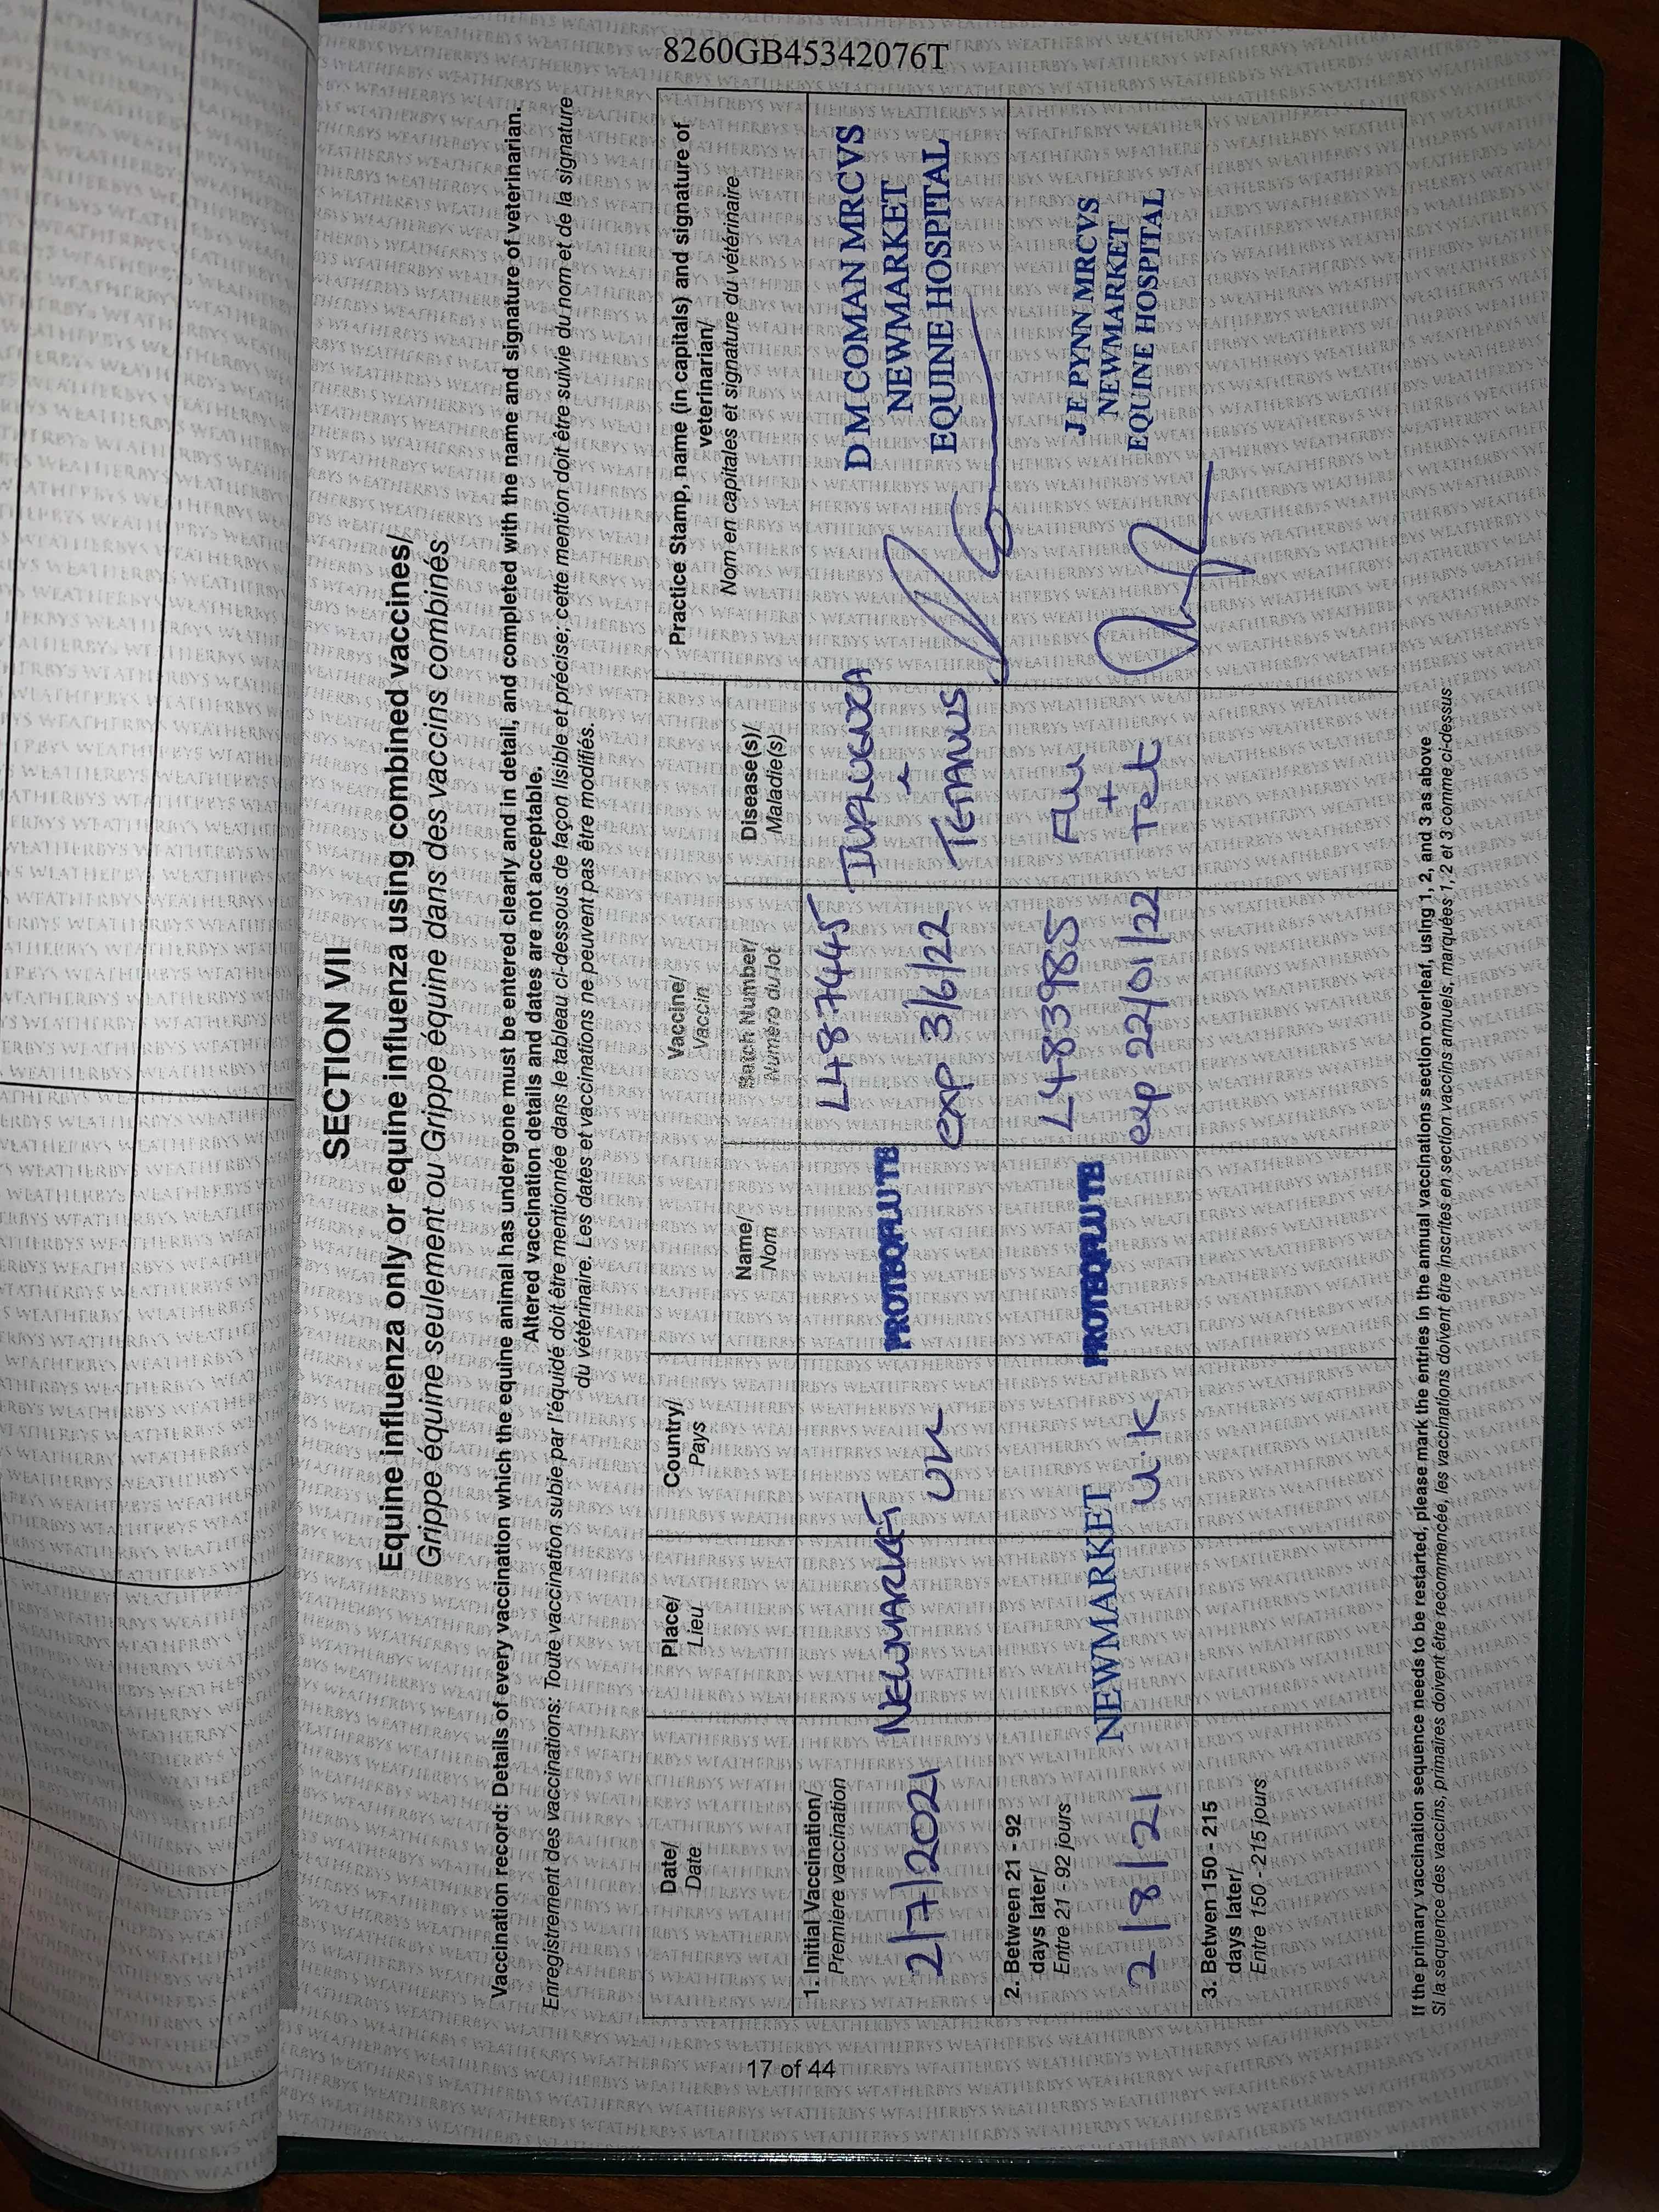 8260GB45342076T
SECTION VII
Equine influenza only or equine influenza using combined vaccines/
Grippe équine seulement ou Grippe équine dans des vaccins combinés
Vaccination record: Details of every vaccination which the equine animal has undergone must be entered clearly and in detail, and completed with the name and signature of veterinarian.
Altered vaccination details and dates are not acceptable.
Enregistrement des vaccinations: Toute vaccination subie par l'équidé doit être mentionnée dans le tableau ci-dessous de façon lisible et précise; cette mention doit être suivie du nom et de la signature
du vétérinaire. Les dates et vaccinations ne peuvent pas être modifiés.
Date/
Date
Place/
Lieu
Country/
Pays
Vaccine/
Vaccin
Name/
Nom
Batch Number/
Numéro du lot
Disease(s)/
Maladie(s)
Practice Stamp, name (in capitals) and signature of
veterinarian/
Nom en capitales et signature du vétérinaire
1. Initial Vaccination/
Première vaccination
2/7/2021
NEWMARKET
UK
PROTEQFLU TE
L487445
exp 3/6/22
INFLUENZA
TETANUS
D M COMAN MRCVS
NEWMARKET
EQUINE HOSPITAL
2. Between 21 - 92
days later/
Entre 21 - 92 jours
2/8/21
NEWMARKET
U.K
PROTEQFLU TE
L483985
exp 22/01/22
Flu
+
Tet
J E PYNN MRCVS
NEWMARKET
EQUINE HOSPITAL
3. Betwen 150 - 215
days later/
Entre 150 - 215 jours
If the primary vaccination sequence needs to be restarted, please mark the entries in the annual vaccinations section overleaf, using 1, 2, and 3 as above
Si la sequence des vaccins, primaires doivent être recommencée, les vaccinations doivent être inscrites en section vaccins annuels, marquées 1, 2 et 3 comme ci-dessus
17 of 44